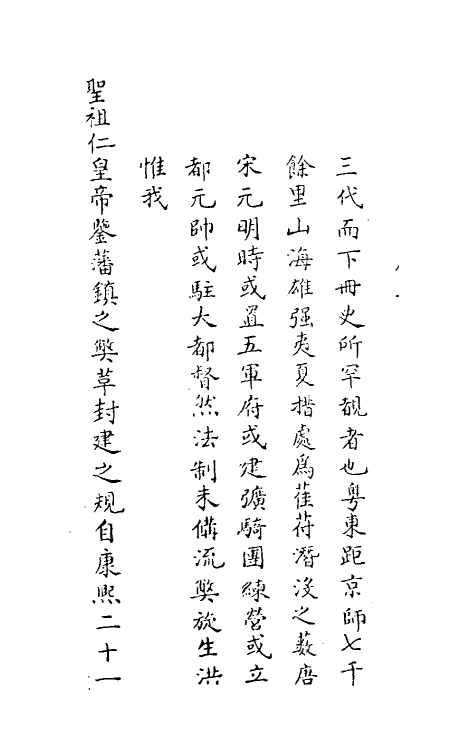 三代而下冊史所罕覩者也粤東距京師七千
餘里山海雄强夷夏襍處爲萑苻潛没之藪唐
宋元明時或置五軍府或建彍騎團練營或立
都元帥或駐大都督然法制未備流獘旋生洪
惟我
聖祖仁皇帝鑒藩鎮之獘革封建之規自康熙二十一